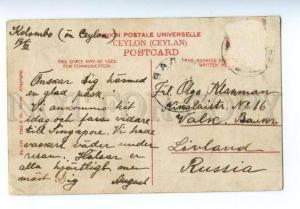 Kolombo (ön Ceylon)
UNION POSTALE UNIVERSELLE
CEYLON (CEYLAN)
POSTCARD
THIS SPACE MAY BE USED
FOR COMMUNICATION
Önskar Dig härmed
en glad påsk.
Vi ankommo hit
idag och fara vidare
till Singapore. Vi hade
vackert väder under
resan. Hälsar er
alla hjärtligt men
mäst Dig August
Frl. Olga Klanman
No 16
Walk
Livland
Russia